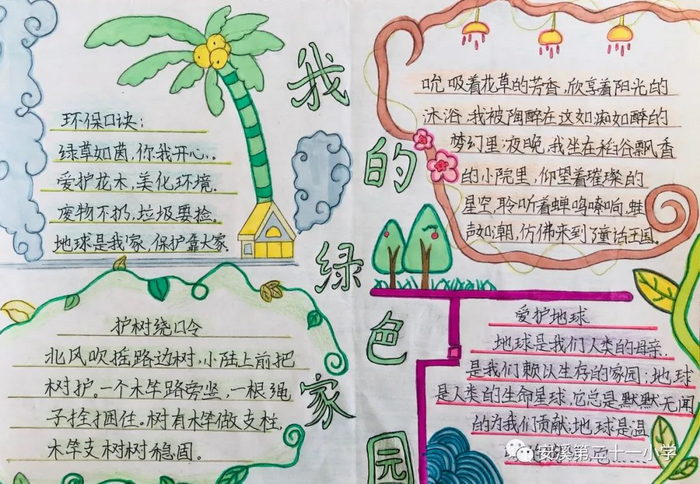 我的绿色家园
环保口诀:
绿草如茵,你我开心.
爱护花木,美化环境.
废物不扔,垃圾要捡.
地球是我家,保护靠大家
吮吸着花草的芳香,欣享着阳光的
沐浴.我被陶醉在这如痴如醉的
梦幻里;夜晚,我坐在稻谷飘香
的小院里,仰望着璀璨的
星空,聆听着蝉鸣嗓响,蛙
鼓如潮,仿佛来到了童话王国.
护树绕口令
北风吹摇路边树,小陆上前把
树护。一个木竿路旁竖,一根绳
子拴捆住。树有木竿做支柱,
木竿支树树稳固。
爱护地球
地球是我们人类的母亲.
是我们赖以生存的家园;地球
是人类的生命星球,它总是默默无闻
的为我们贡献;地球是温
安溪第二十一小学